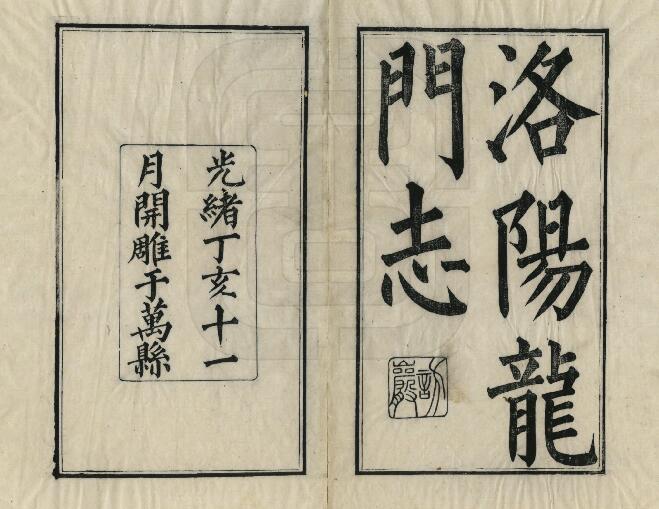 洛陽龍
門志
光緒丁亥十一
月開雕于萬縣